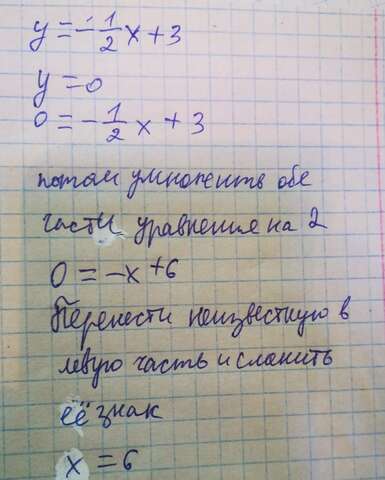 y = -1/2 x + 3
y = 0
0 = -1/2 x + 3
потом умножить обе
части уравнения на 2
0 = -x + 6
Перенести неизвестную в
левую часть и сменить
её знак
x = 6